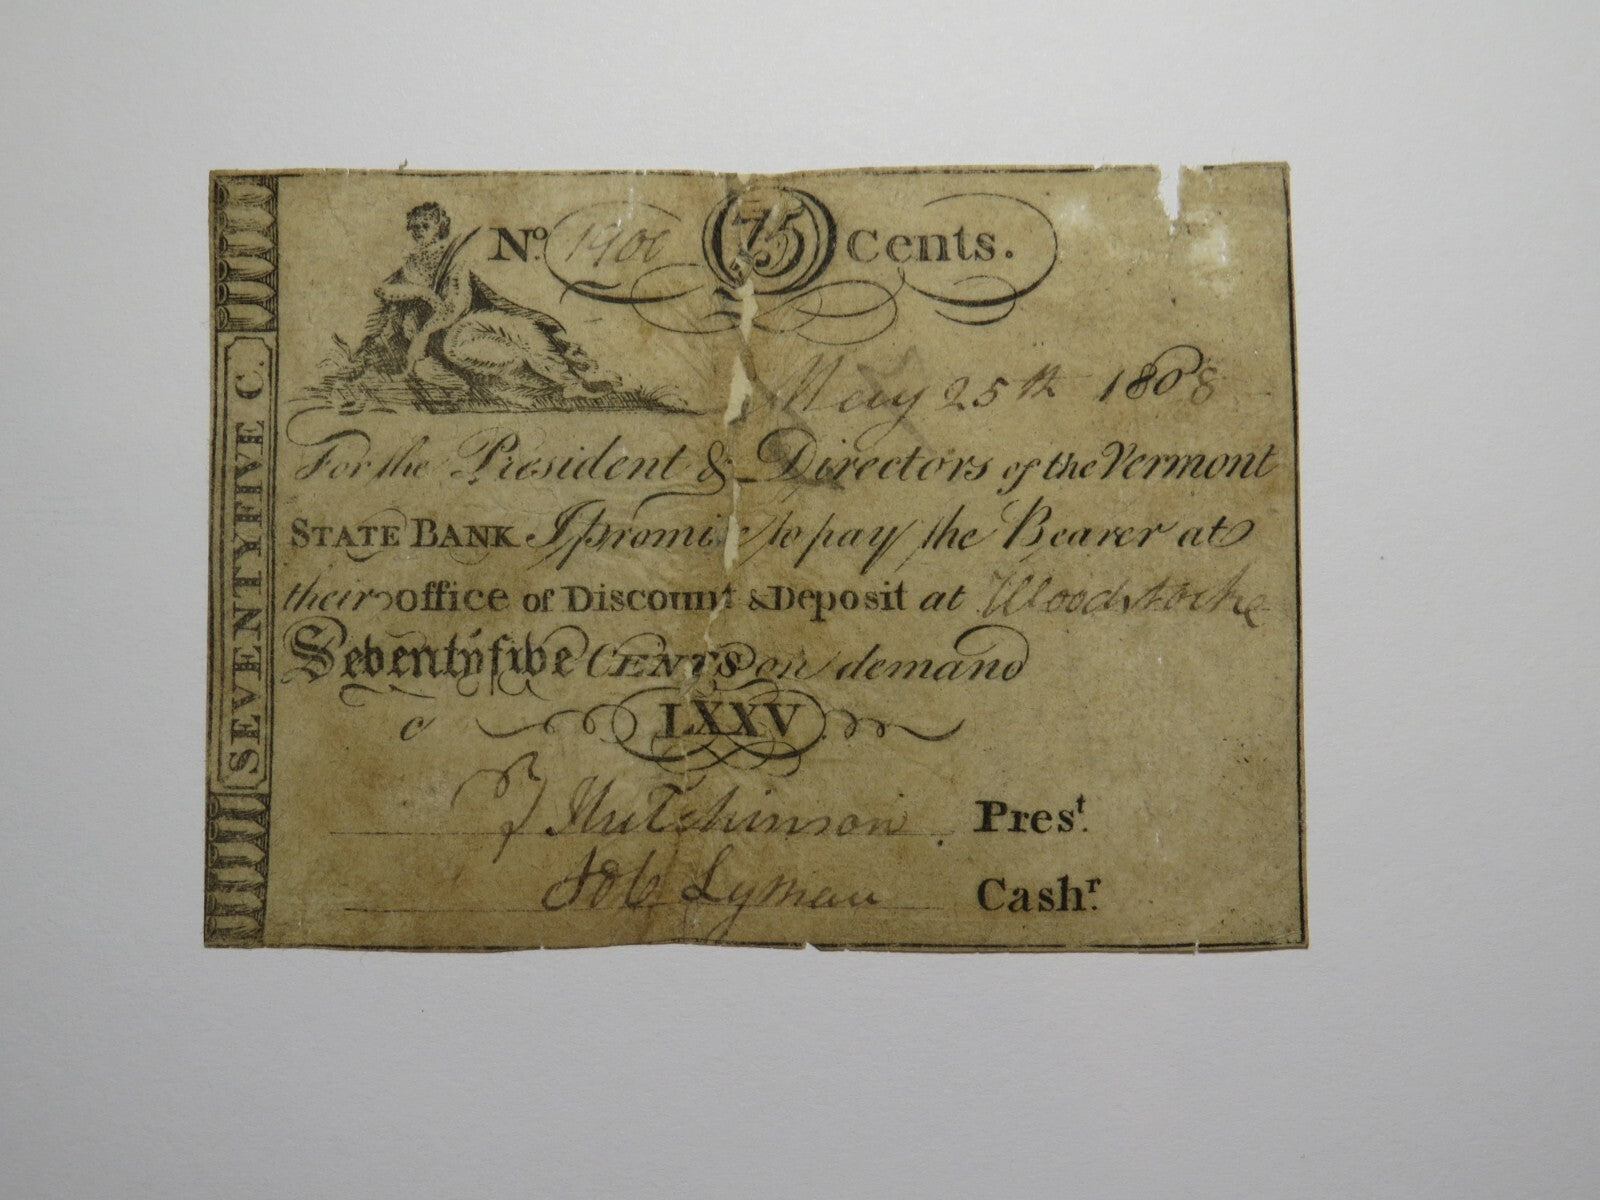 No. 1900 75 Cents.
May 25th 1808
For the President & Directors of the Vermont
STATE BANK I promise to pay the Bearer at
their office of Discount & Deposit at Woodstock
Seventyfive CENTS on demand
C LXXV
T Hutchinson Prest.
Job Lyman Cashr.
SEVENTYFIVE C.